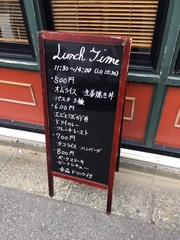 Lunch Time
11:30~14:00 (LO 13:30)
・500円
オムライス 生姜焼き丼
パスタ3種
・600円
エビとアボカド丼
ドライカレー
フレンチトースト
・700円
タコライス ハンバーグ
・800円
ポークステーキ
ビーフシチュー
全品ドリンク付